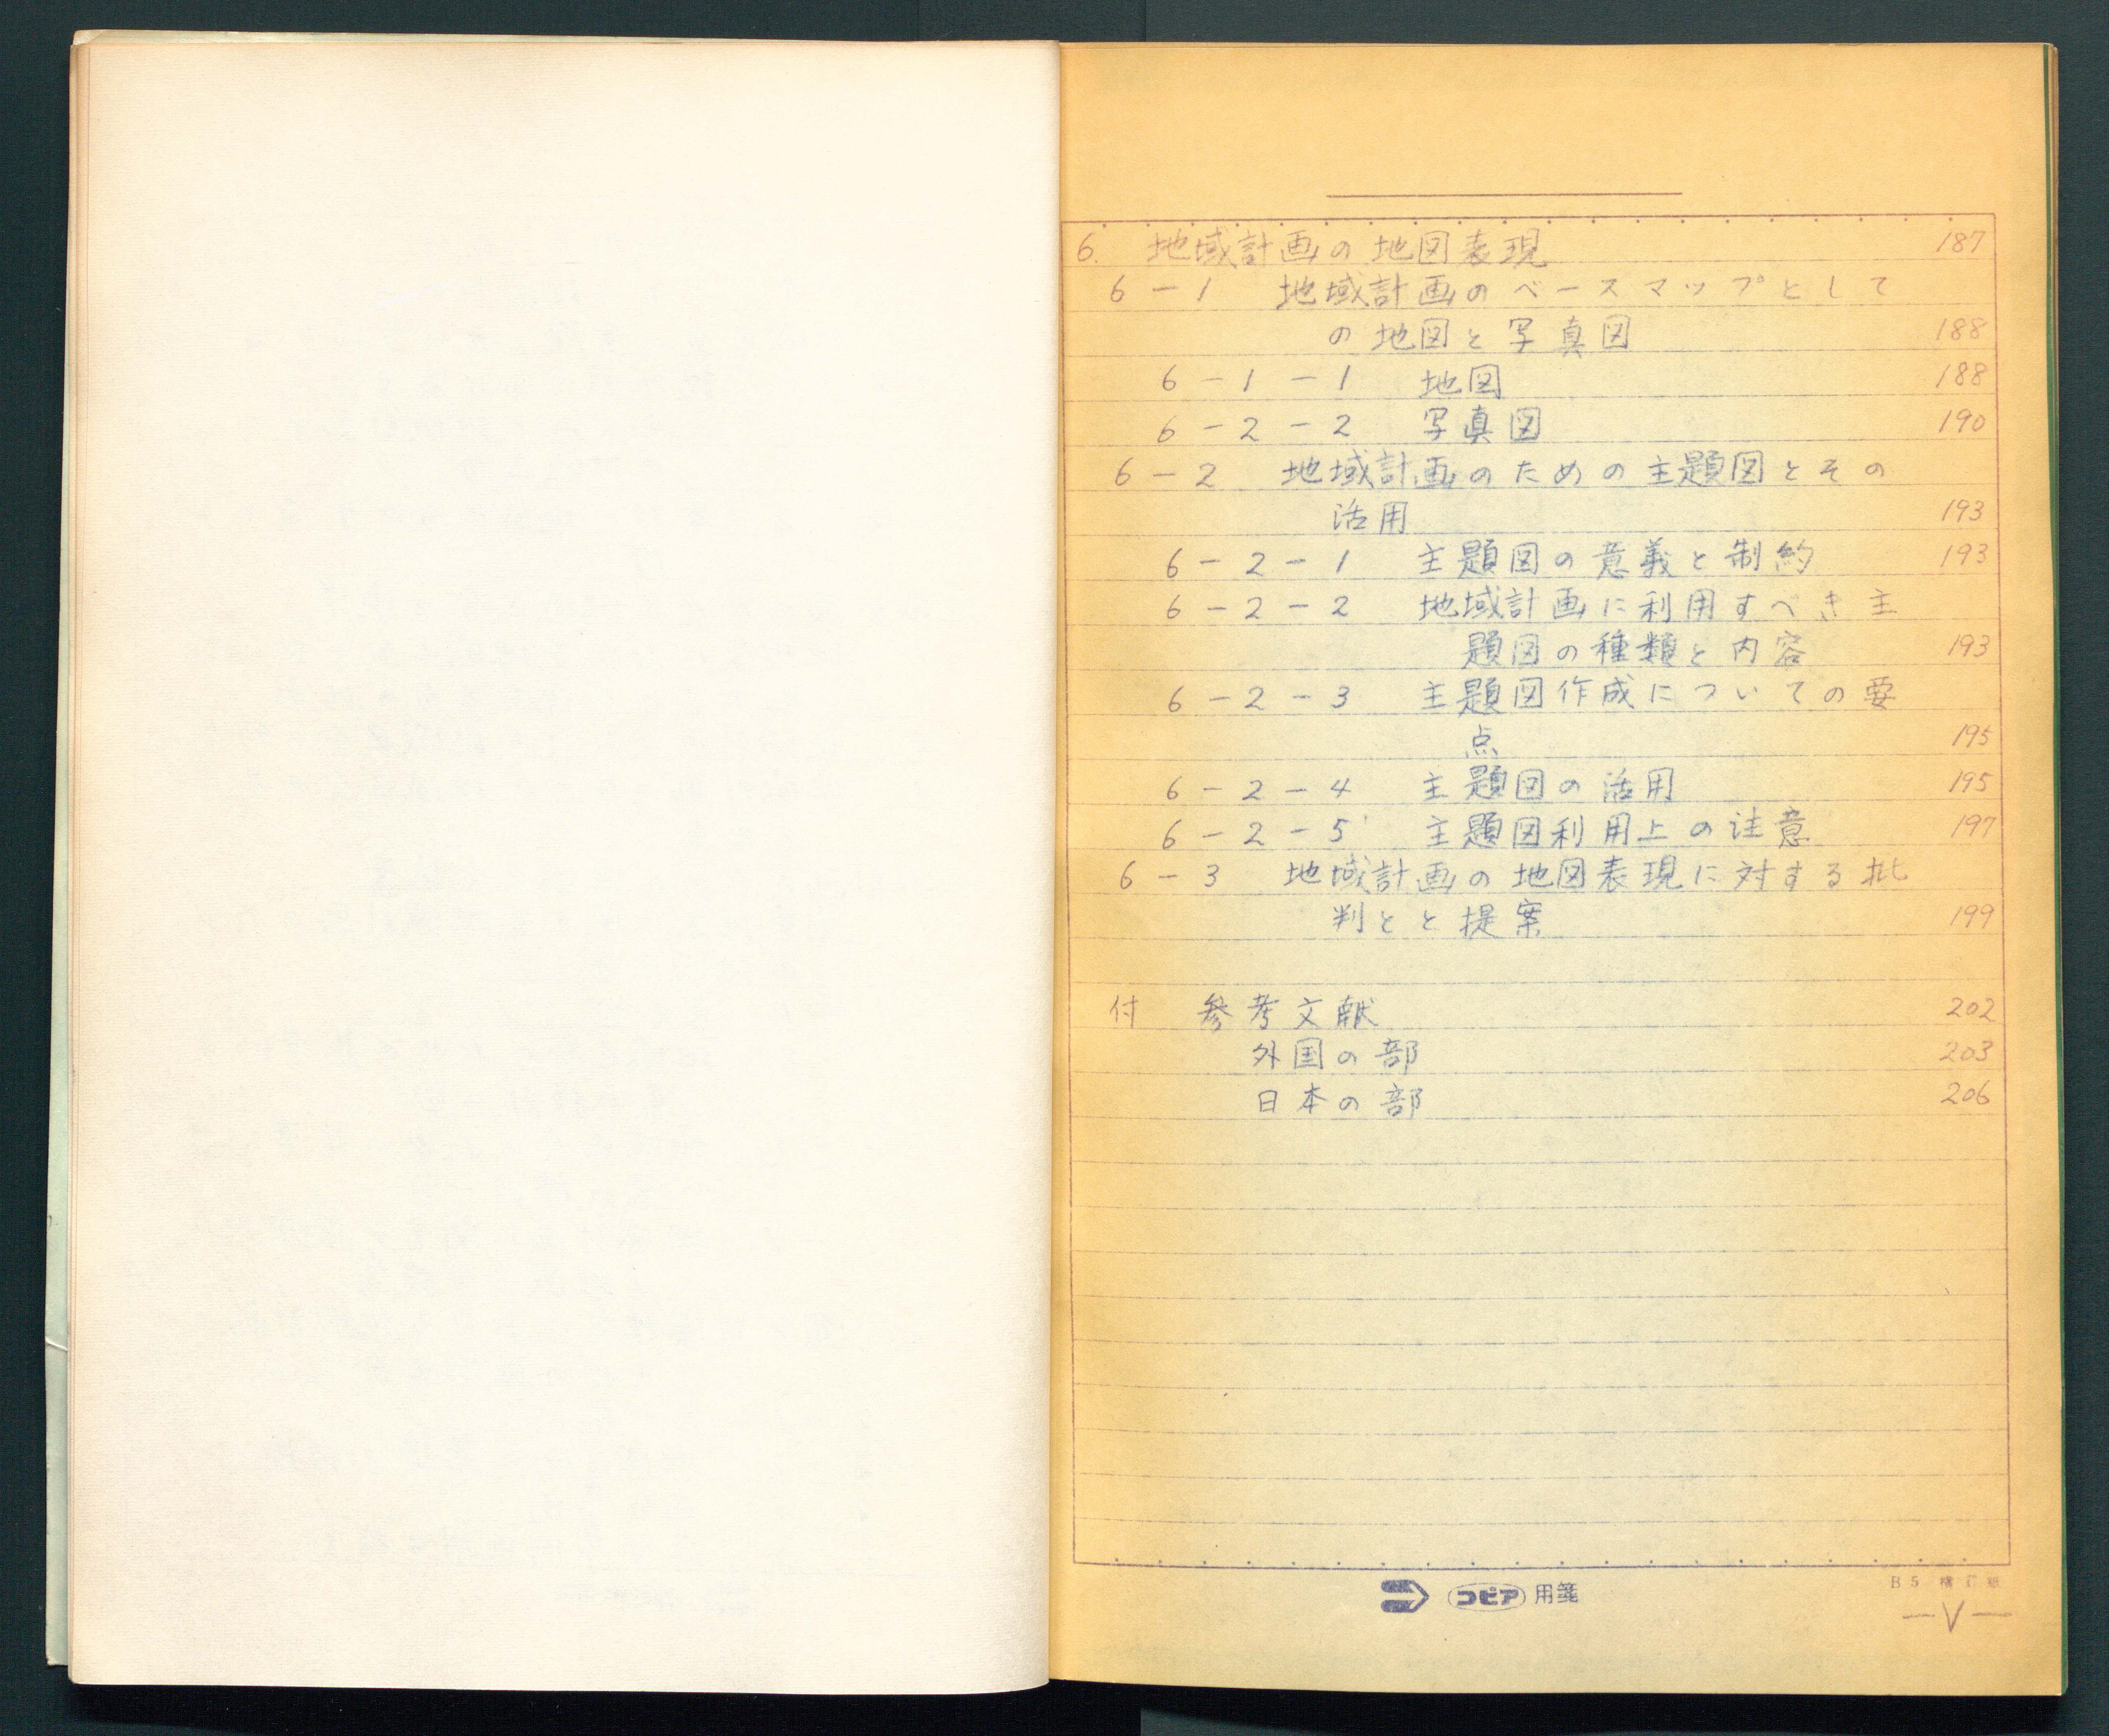 6. 地域計画の地図表現 187
6－1 地域計画のベースマップとして
の地図と写真図 188
6－1－1 地図 188
6－2－2 写真図 190
6－2 地域計画のための主題図とその
活用 193
6－2－1 主題図の意義と制約 193
6－2－2 地域計画に利用すべき主
題図の種類と内容 193
6－2－3 主題図作成についての要
点 195
6－2－4 主題図の活用 195
6－2－5 主題図利用上の注意 197
6－3 地域計画の地図表現に対する批
判とと提案 199
付 参考文献 202
外国の部 203
日本の部 206
コピア 用箋
B5
—V—